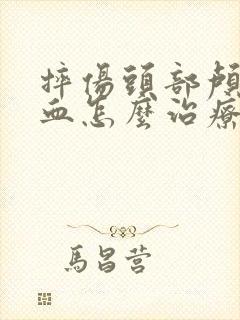 摔傷頭部顱
血怎麼治療
馬昌营